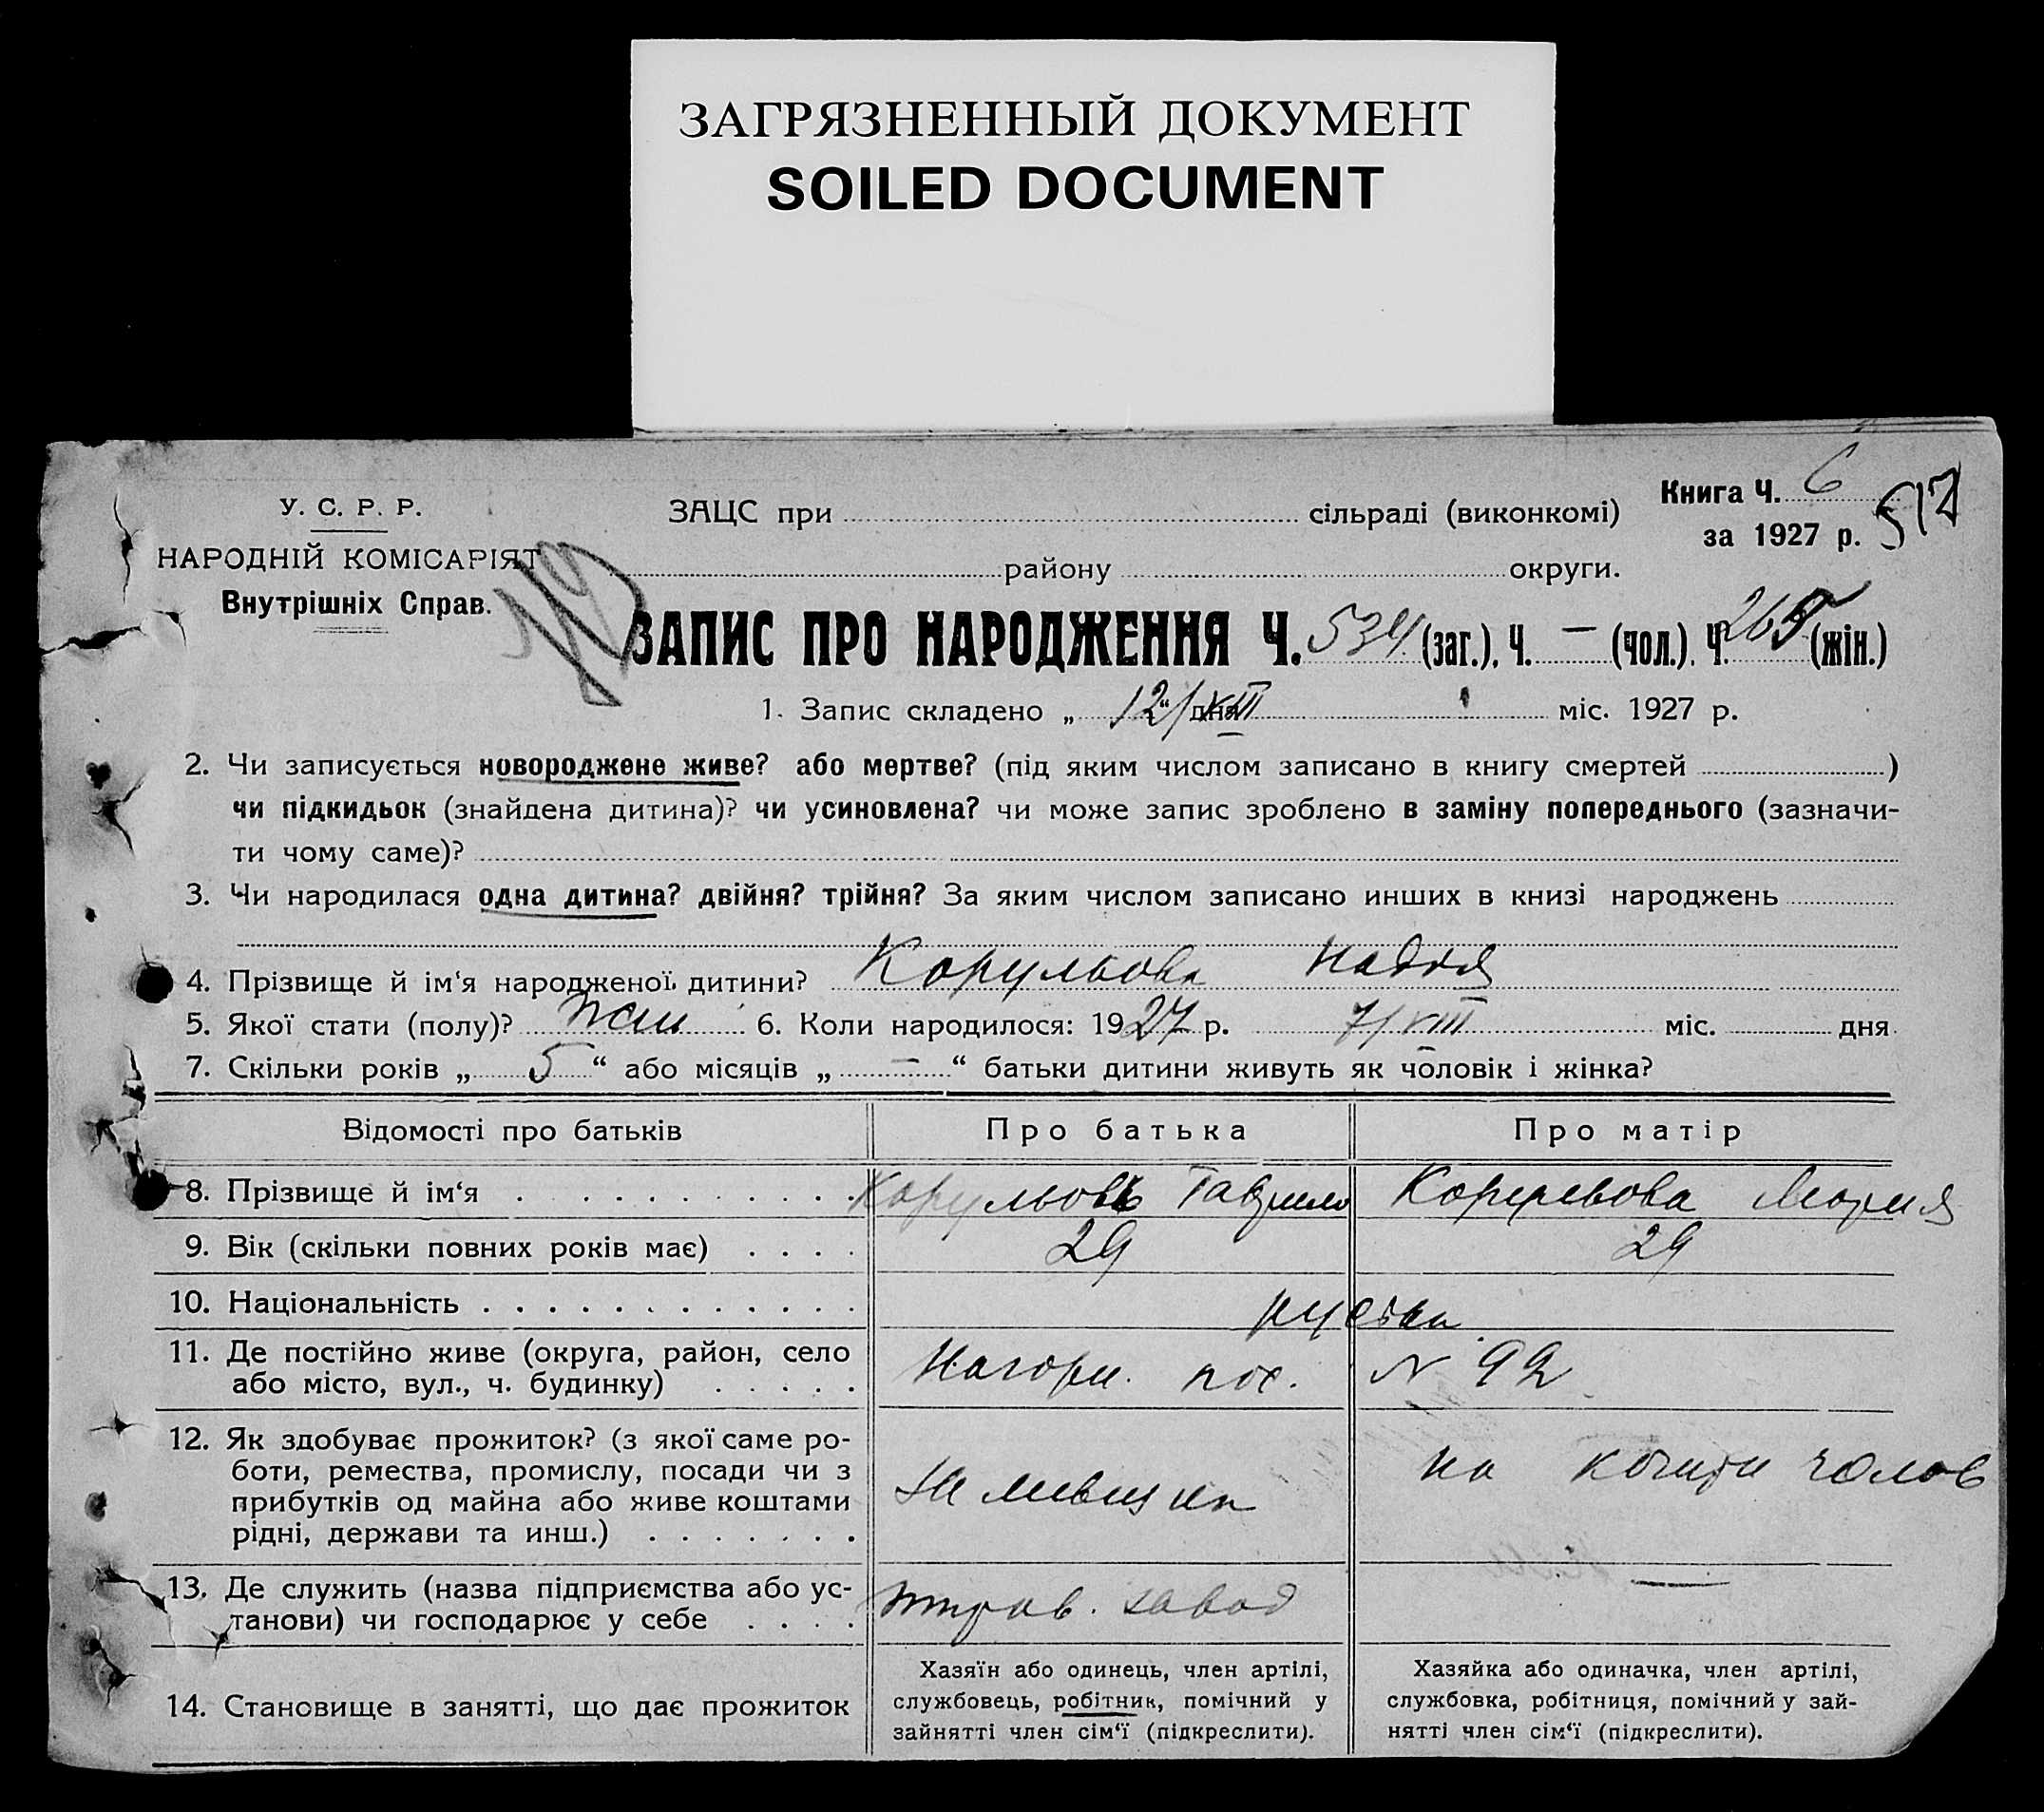 ЗАГРЯЗНЕННЫЙ ДОКУМЕНТ
SOILED DOCUMENT
У. С. Р. Р.
НАРОДНІЙ КОМІСАРІЯТ
Внутрішніх Справ.
ЗАЦС при сільраді (виконкомі)
району округи.
Книга Ч. 6
за 1927 р.
517
ЗАПИС ПРО НАРОДЖЕННЯ Ч. 534 (заг.), Ч. — (чол.), Ч. 265 (жін.)
1. Запис складено „ 12/VIII “ дня міс. 1927 р.
2. Чи записується новороджене живе? або мертве? (під яким числом записано в книгу смертей )
чи підкидьок (знайдена дитина)? чи усиновлена? чи може запис зроблено в заміну попереднього (зазначи-
ти чому саме)?
3. Чи народилася одна дитина? двійня? трійня? За яким числом записано инших в книзі народжень
4. Прізвище й ім‘я народженої дитини? Корульова Надія
5. Якої стати (полу)? жін 6. Коли народилося: 1927 р. 7/VIII міс. дня
7. Скільки років „ 5 “ або місяців „ — “ батьки дитини живуть як чоловік і жінка?
Відомості про батьків Про батька Про матір
8. Прізвище й ім‘я Корульов Гаврило Корульова Мария
9. Вік (скільки повних років має) 29 29
10. Національність руські
11. Де постійно живе (округа, район, село
або місто, вул., ч. будинку) Нагорн. пос. N 92
12. Як здобуває прожиток? (з якої саме ро-
боти, ремества, промислу, посади чи з
прибутків од майна або живе коштами
рідні, держави та инш.) на кошти чолов
13. Де служить (назва підприємства або ус-
танови) чи господарює у себе завод —
14. Становище в занятті, що дає прожиток
Хазяїн або одинець, член артілі,
службовець, робітник, помічний у
зайнятті член сім‘ї (підкреслити).
Хазяйка або одиначка, член артілі,
службовка, робітниця, помічний у зай-
нятті член сім‘ї (підкреслити).